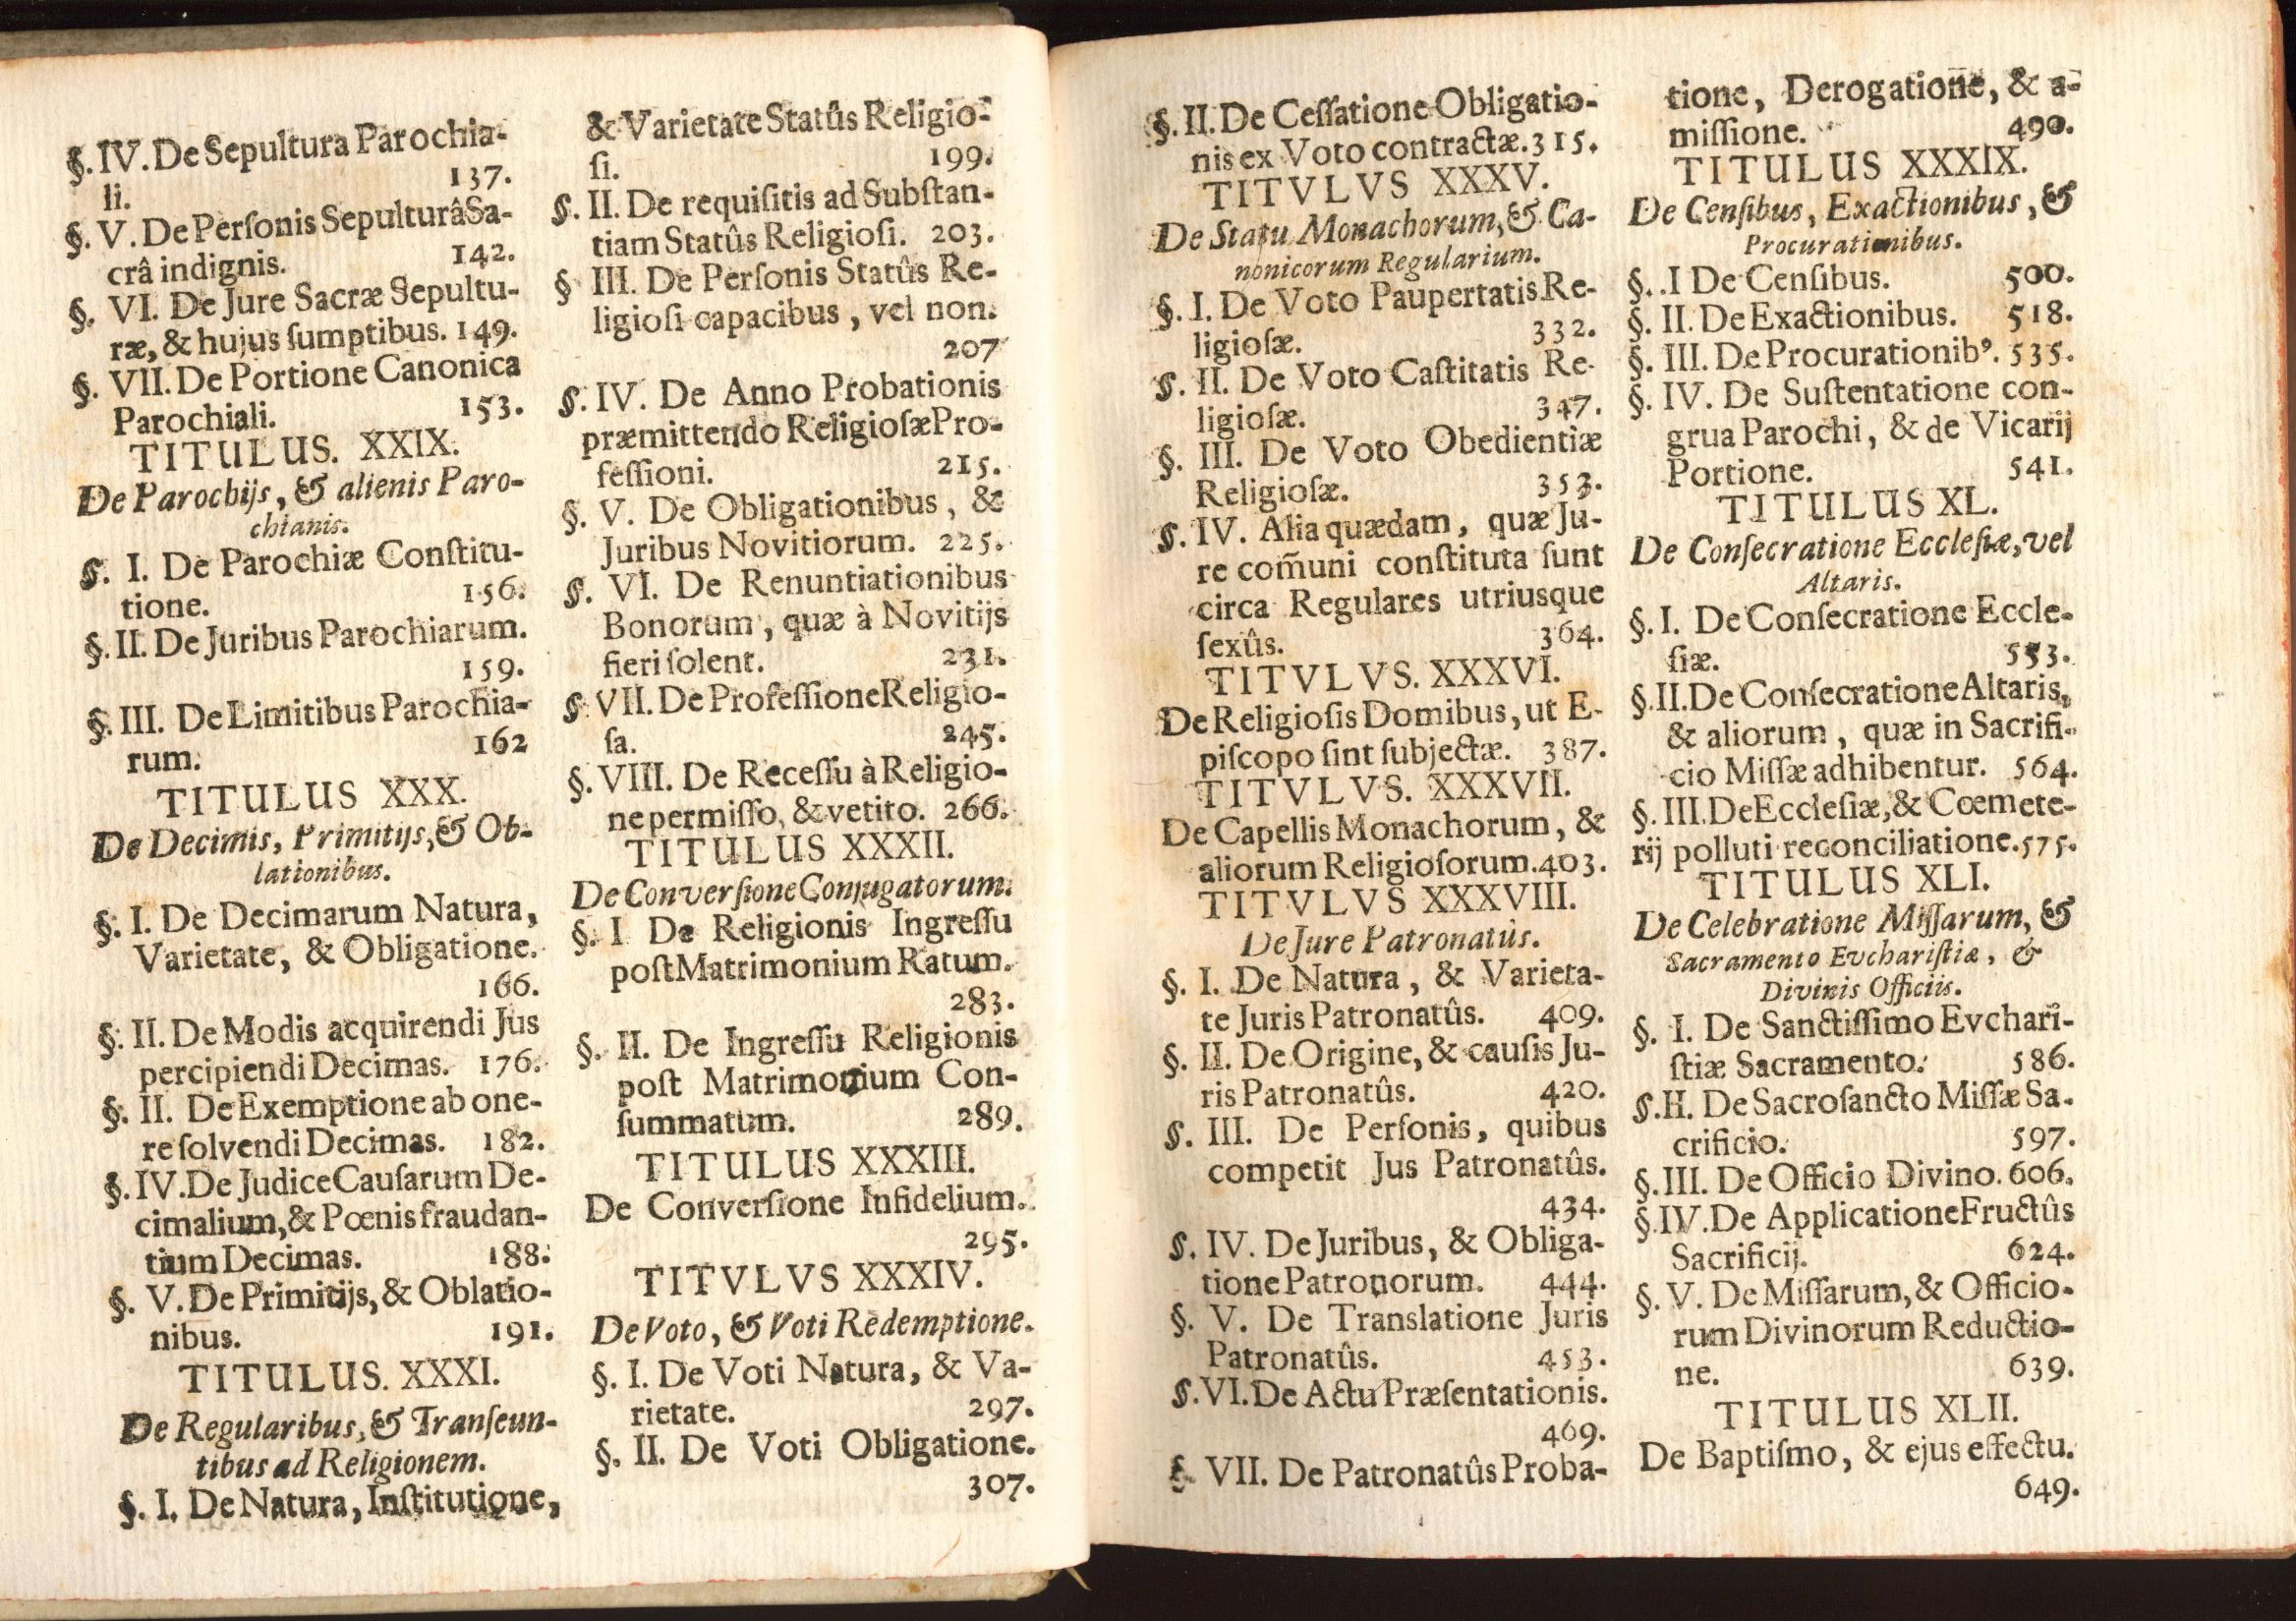 §. IV. De Sepultura Parochia-
li. 137.
§. V. De Perſonis Sepulturâ Sa-
crâ indignis. 142.
§. VI. De Jure Sacræ Sepultu-
ræ, & hujus ſumptibus. 149.
§. VII. De Portione Canonica
Parochiali. 153.
TITULUS. XXIX.
De Parochijs, & alienis Paro-
chianis.
§. I. De Parochiæ Conſtitu-
tione. 156.
§. II. De Juribus Parochiarum.
159.
§. III. De Limitibus Parochia-
rum. 162
TITULUS XXX.
De Decimis, Primitijs, & Ob-
lationibus.
§. I. De Decimarum Natura,
Varietate, & Obligatione.
166.
§. II. De Modis acquirendi Jus
percipiendi Decimas. 176.
§. II. De Exemptione ab one-
re ſolvendi Decimas. 182.
§. IV. De Judice Cauſarum De-
cimalium, & Pœnis fraudan-
tium Decimas. 188.
§. V. De Primitijs, & Oblatio-
nibus. 191.
TITULUS. XXXI.
De Regularibus, & Tranſeun-
tibus ad Religionem.
§. I. De Natura, Inſtitutione,
& Varietate Statûs Religio-
ſi. 199.
§. II. De requiſitis ad Subſtan-
tiam Statûs Religioſi. 203.
§ III. De Perſonis Statûs Re-
ligioſi capacibus, vel non.
207
§. IV. De Anno Probationis
præmittendo Religioſæ Pro-
feſſioni. 215.
§. V. De Obligationibus, &
Juribus Novitiorum. 225.
§. VI. De Renuntiationibus
Bonorum, quæ à Novitijs
fieri ſolent. 231.
§. VII. De Profeſſione Religio-
ſa. 245.
§. VIII. De Receſſu à Religio-
ne permiſſo, & vetito. 266.
TITULUS XXXII.
De Converſione Conjugatorum.
§. I De Religionis Ingreſſu
poſt Matrimonium Ratum.
283.
§. II. De Ingreſſu Religionis
poſt Matrimonium Con-
ſummatum. 289.
TITULUS XXXIII.
De Converſione Infidelium.
295.
TITVLVS XXXIV.
De Voto, & Voti Redemptione.
§. I. De Voti Natura, & Va-
rietate. 297.
§. II. De Voti Obligatione.
307.
§. II. De Ceſſatione Obligatio-
nis ex Voto contractæ. 315.
TITVLVS XXXV.
De Statu Monachorum, & Ca-
nonicorum Regularium.
§. I. De Voto Paupertatis Re-
ligioſæ. 332.
§. II. De Voto Caſtitatis Re-
ligioſæ. 347.
§. III. De Voto Obedientiæ
Religioſæ. 353.
§. IV. Alia quædam, quæ Ju-
re com̃uni conſtituta ſunt
circa Regulares utriusque
ſexûs. 364.
TITVLVS. XXXVI.
De Religioſis Domibus, ut E-
piſcopo ſint ſubjectæ. 387.
TITVLVS. XXXVII.
De Capellis Monachorum, &
aliorum Religioſorum. 403.
TITVLVS XXXVIII.
De Jure Patronatûs.
§. I. De Natura, & Varieta-
te Juris Patronatûs. 409.
§. II. De Origine, & cauſis Ju-
ris Patronatûs. 420.
§. III. De Perſonis, quibus
competit Jus Patronatûs.
434.
§. IV. De Juribus, & Obliga-
tione Patronorum. 444.
§. V. De Translatione Juris
Patronatûs. 453.
§. VI. De Actu Præſentationis.
469.
§. VII. De Patronatûs Proba-
tione, Derogatione, & a-
miſſione. 490.
TITULUS XXXIX.
De Cenſibus, Exactionibus, &
Procurationibus.
§. .I De Cenſibus. 500.
§. II. De Exactionibus. 518.
§. III. De Procurationibꝰ. 535.
§. IV. De Suſtentatione con-
grua Parochi, & de Vicarij
Portione. 541.
TITULUS XL.
De Conſecratione Eccleſiæ, vel
Altaris.
§. I. De Conſecratione Eccle-
ſiæ. 553.
§. II. De Conſecratione Altaris,
& aliorum, quæ in Sacrifi-
cio Miſſæ adhibentur. 564.
§. III. De Eccleſiæ, & Cœmete-
rij polluti reconciliatione. 575.
TITULUS XLI.
De Celebratione Miſſarum, &
Sacramento Evchariſtiæ, &
Divinis Officiis.
§. I. De Sanctiſſimo Evchari-
ſtiæ Sacramento. 586.
§. II. De Sacroſancto Miſſæ Sa-
crificio. 597.
§. III. De Officio Divino. 606.
§. IV. De Applicatione Fructûs
Sacrificij. 624.
§. V. De Miſſarum, & Officio-
rum Divinorum Reductio-
ne. 639.
TITULUS XLII.
De Baptiſmo, & ejus effectu.
649.